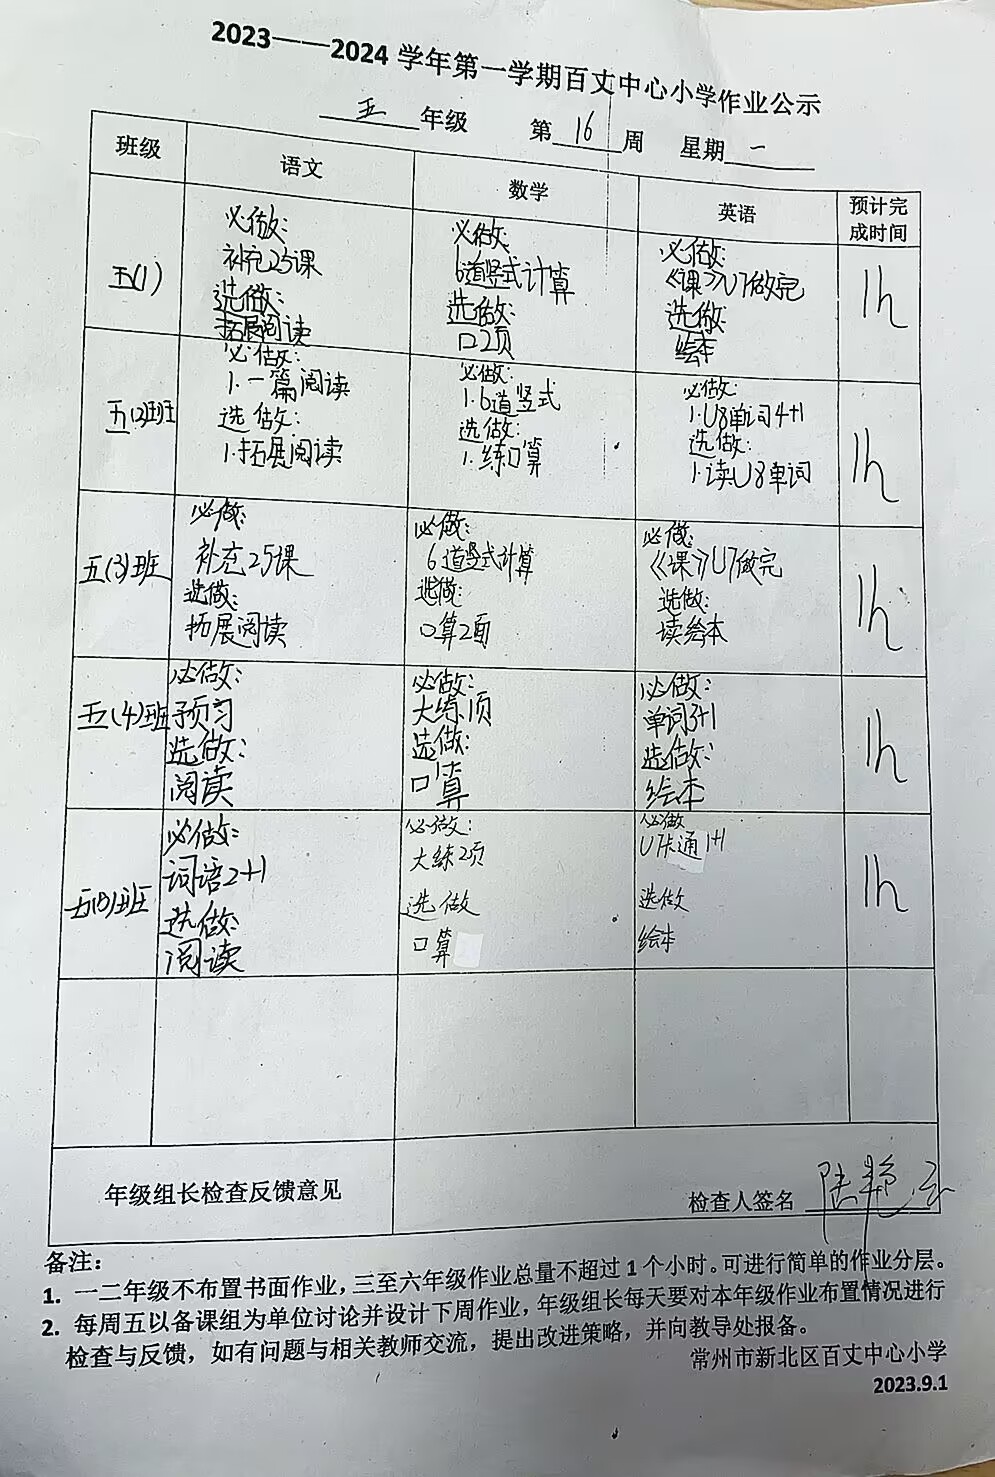 2023——2024 学年第一学期百丈中心小学作业公示
五 年级 第 16 周 星期 一
班级 语文 数学 英语 预计完成时间
五(1)
必做:
补充25课
选做:
拓展阅读
必做:
6道竖式计算
选做:
口2页
必做:
《课》U7做完
选做:
绘本
1h
五(2)班
必做:
1.一篇阅读
选做:
1.拓展阅读
必做:
1.6道竖式
选做:
1.练口算
必做:
1.U8单词4+1
选做:
1.读U8单词
1h
五(3)班
必做:
补充25课
选做:
拓展阅读
必做:
6道竖式计算
选做:
口算2面
必做:
《课》U7做完
选做:
读绘本
1h
五(4)班
必做:
预习
选做:
阅读
必做:
大练1页
选做:
口算
必做:
单词3+1
选做:
绘本
1h
必做:
词语2+1
选做:
阅读
必做:
大练2页
选做
口算
必做
U7卡通1+1
选做
绘本
1h
年级组长检查反馈意见
检查人签名
备注:
1. 一二年级不布置书面作业，三至六年级作业总量不超过 1 个小时。可进行简单的作业分层。
2. 每周五以备课组为单位讨论并设计下周作业，年级组长每天要对本年级作业布置情况进行
检查与反馈，如有问题与相关教师交流，提出改进策略，并向教导处报备。
常州市新北区百丈中心小学
2023.9.1